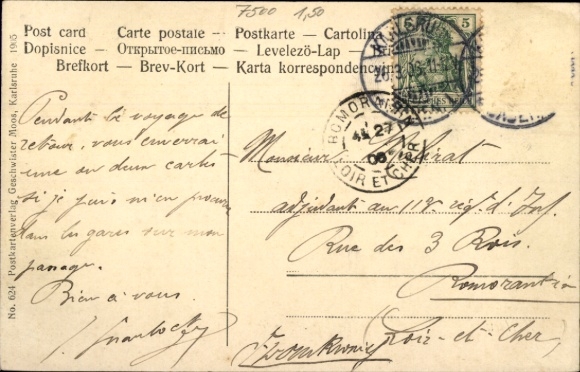 7500 1,50
Post card Carte postale Postkarte Cartolina
Dopisnice - Открытое-письмо - Levelező-Lap
Brefkort - Brev-Kort - Karta korrespondencyjna
No. 624 Postkartenverlag Geschwister Moos, Karlsruhe 1905
5
ROMORANTIN
4E 27
06
LOIR ET CHER
Pendant le voyage de
retour, vous enverrai
une ou deux cartes
si je puis m'en procurer
dans les gares sur mon
passage.
Bien à vous.
Monsieur
adjudant au 113e régt d'Inf.
Rue des 3 Rois.
Romorantin
Loir-et-Cher